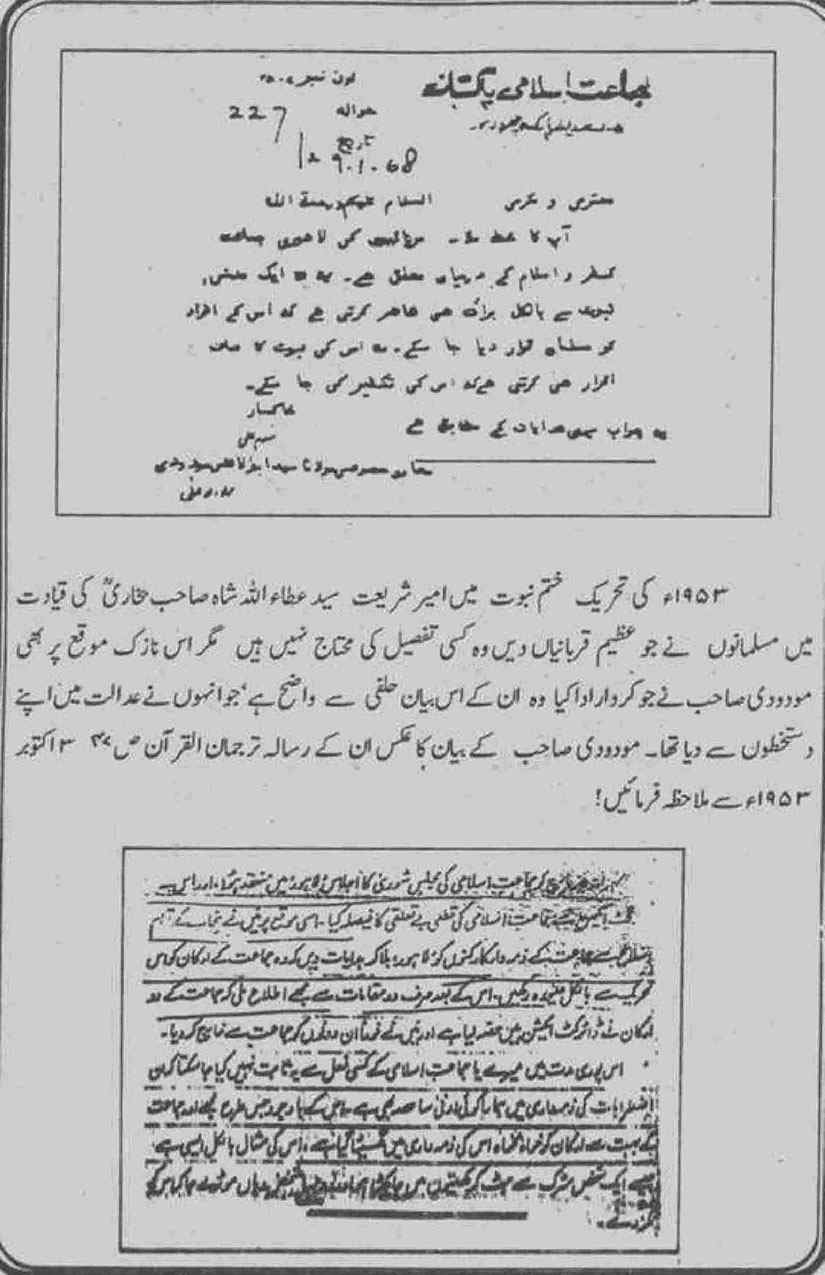 جماعت اسلامی پاکستان
فون نمبر
حوالہ 227
تاریخ 29.1.68
محترمی و مکرمی السلام علیکم و رحمتہ اللہ
آپ کا خط ملا۔ مرزائیوں کی لاھوری جماعت
کفر و اسلام کے درمیان معلق ہے۔ یہ نہ ایک مدعی
نبوت سے بالکل برات ھی ظاھر کرتی ھے کہ اس کے افراد
کو مسلمان قرار دیا جا سکے۔ نہ اس کی نبوت کا صاف
اقرار ھی کرتی ھے کہ اس کی تکفیر کی جا سکے۔
خاکسار
یہ جواب میری ھدایات کے مطابق ھے
معاون خصوصی مولانا سید ابوالاعلی مودودی
۱۹۵۳ء کی تحریک ختم نبوت میں امیر شریعت سید عطاء اللہ شاہ صاحب بخاریؒ کی قیادت
میں مسلمانوں نے جو عظیم قربانیاں دیں وہ کسی تفصیل کی محتاج نہیں ہیں مگر اس نازک موقع پر بھی
مودودی صاحب نے جو کردار ادا کیا وہ ان کے اس بیان حلفی سے واضح ہے' جو انہوں نے عدالت میں اپنے
دستخطوں سے دیا تھا۔ مودودی صاحب کے بیان کا عکس ان کے رسالہ ترجمان القرآن ص ۴۷ ۳ اکتوبر
۱۹۵۳ء سے ملاحظہ فرمائیں!
کو جماعت اسلامی کی مجلس شوریٰ کا اجلاس لاہور میں منعقد ہوا، اور اس نے
جماعت اسلامی کی قطعی بے تعلقی کا فیصلہ کیا۔ اسی موقع پر میں نے پنجاب کے تمام
جماعت کے ذمہ دار کارکنوں کو لاہور بلا کر ہدایات دیں کہ وہ جماعت کے ارکان کو اس
تحریک سے بالکل علیحدہ رکھیں۔ اس کے بعد صرف دو مقامات سے مجھے اطلاع ملی کہ جماعت کے دو
ارکان نے ڈائرکٹ ایکشن میں حصہ لیا ہے اور میں نے فوراً ان دونوں کو جماعت سے خارج کر دیا۔
اس پوری مدت میں میرے یا جماعت اسلامی کے کسی فعل سے یہ ثابت نہیں کیا جا سکتا کہ ان
اضطرابات کی ذمہ داری میں ہمارا کوئی ادنیٰ سا حصہ بھی ہے۔ اس کے باوجود جس طرح مجھے اور جماعت
کے بہت سے ارکان کو خواہ مخواہ اس کی ذمہ داری میں گھسیٹا گیا ہے، اس کی مثال بالکل ایسی ہے
جیسے ایک شخص سڑک سے ہٹ کر کھیتوں میں جا کھڑا ہو
گزر دے۔